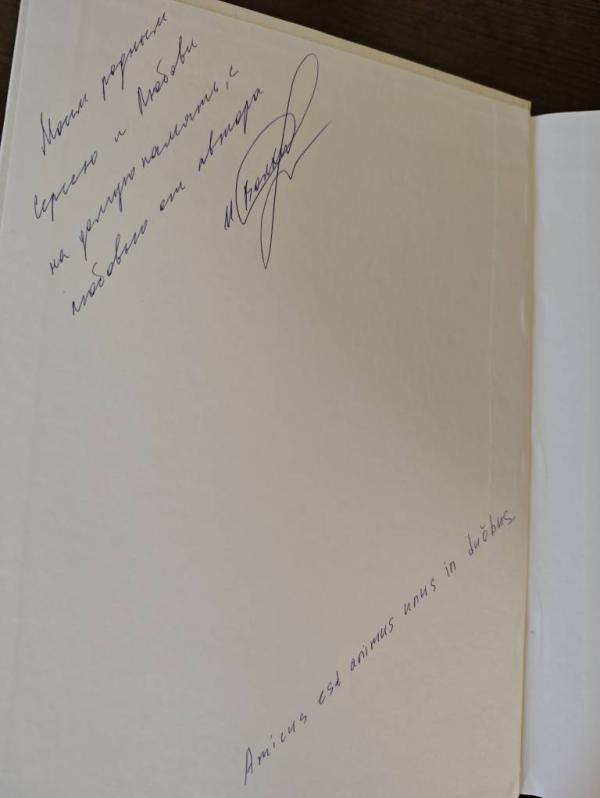 Моим родным
Сергею и Любови
на долгую память, с
любовью от автора
Amicus est animus unus in duŏbus.